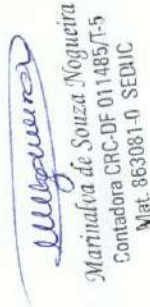 Marinalva de Souza Nogueira
Contadora CRC-DF 011485/T-5
Mat. 863081-0 SEDUC